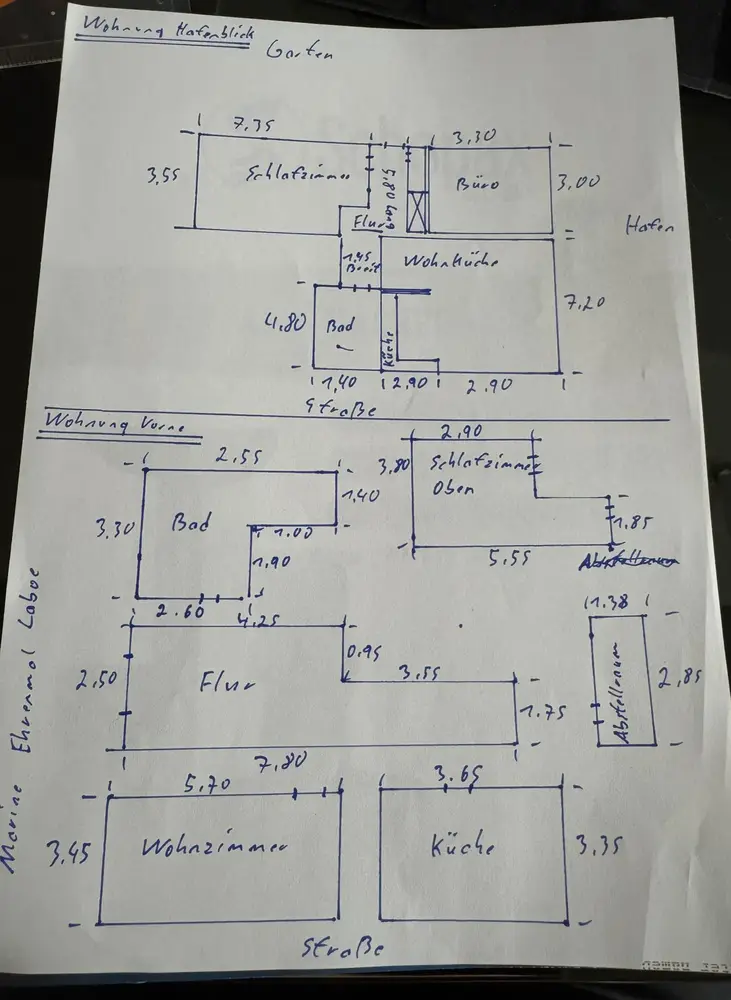 Wohnung Hafenblick
Garten
7.35
3.30
3.55
Schlafzimmer
5.80 lang
Büro
3.00
Flur
Hafen
1.45
Breit
Wohnküche
7.20
4.80
Bad
Küche
1,40
2.90
2.90
Straße
Wohnung Vorne
2.55
2.90
3.80
Schlafzimmer
Oben
Bad
1.40
3.30
1.00
1.85
1.90
5.55
2.60
4.25
1.38
0.95
2.50
Flur
3.55
Abstellraum
2.85
1.75
7.80
Marine Ehrenmal Laboe
5.70
3.65
3.45
Wohnzimmer
Küche
3.35
Straße